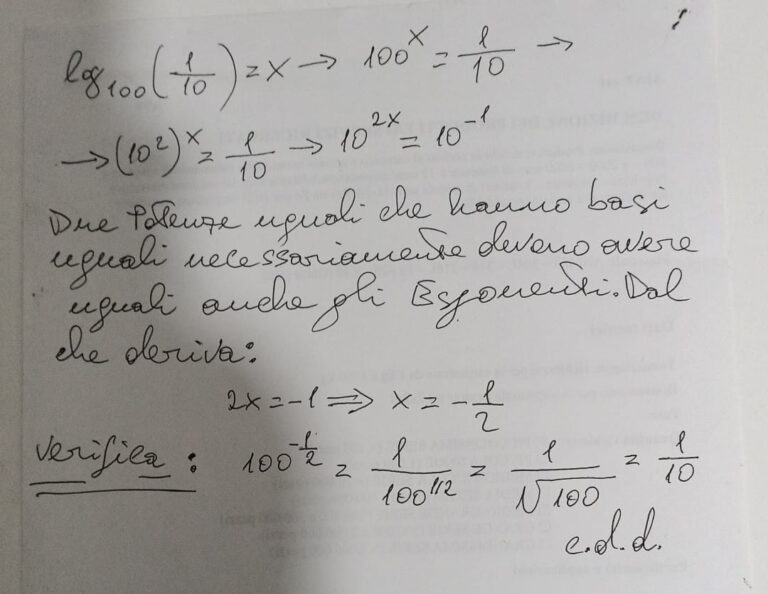 log₁₀₀(1/10) = x → 100ˣ = 1/10 →
→ (10²)ˣ = 1/10 → 10²ˣ = 10⁻¹
Due Potenze uguali che hanno basi
uguali necessariamente devono avere
uguali anche gli Esponenti. Dal
che deriva:
2x = -1 ⇒ x = -1/2
Verifica: 100^(-1/2) = 1/100^(1/2) = 1/√100 = 1/10
c.d.d.